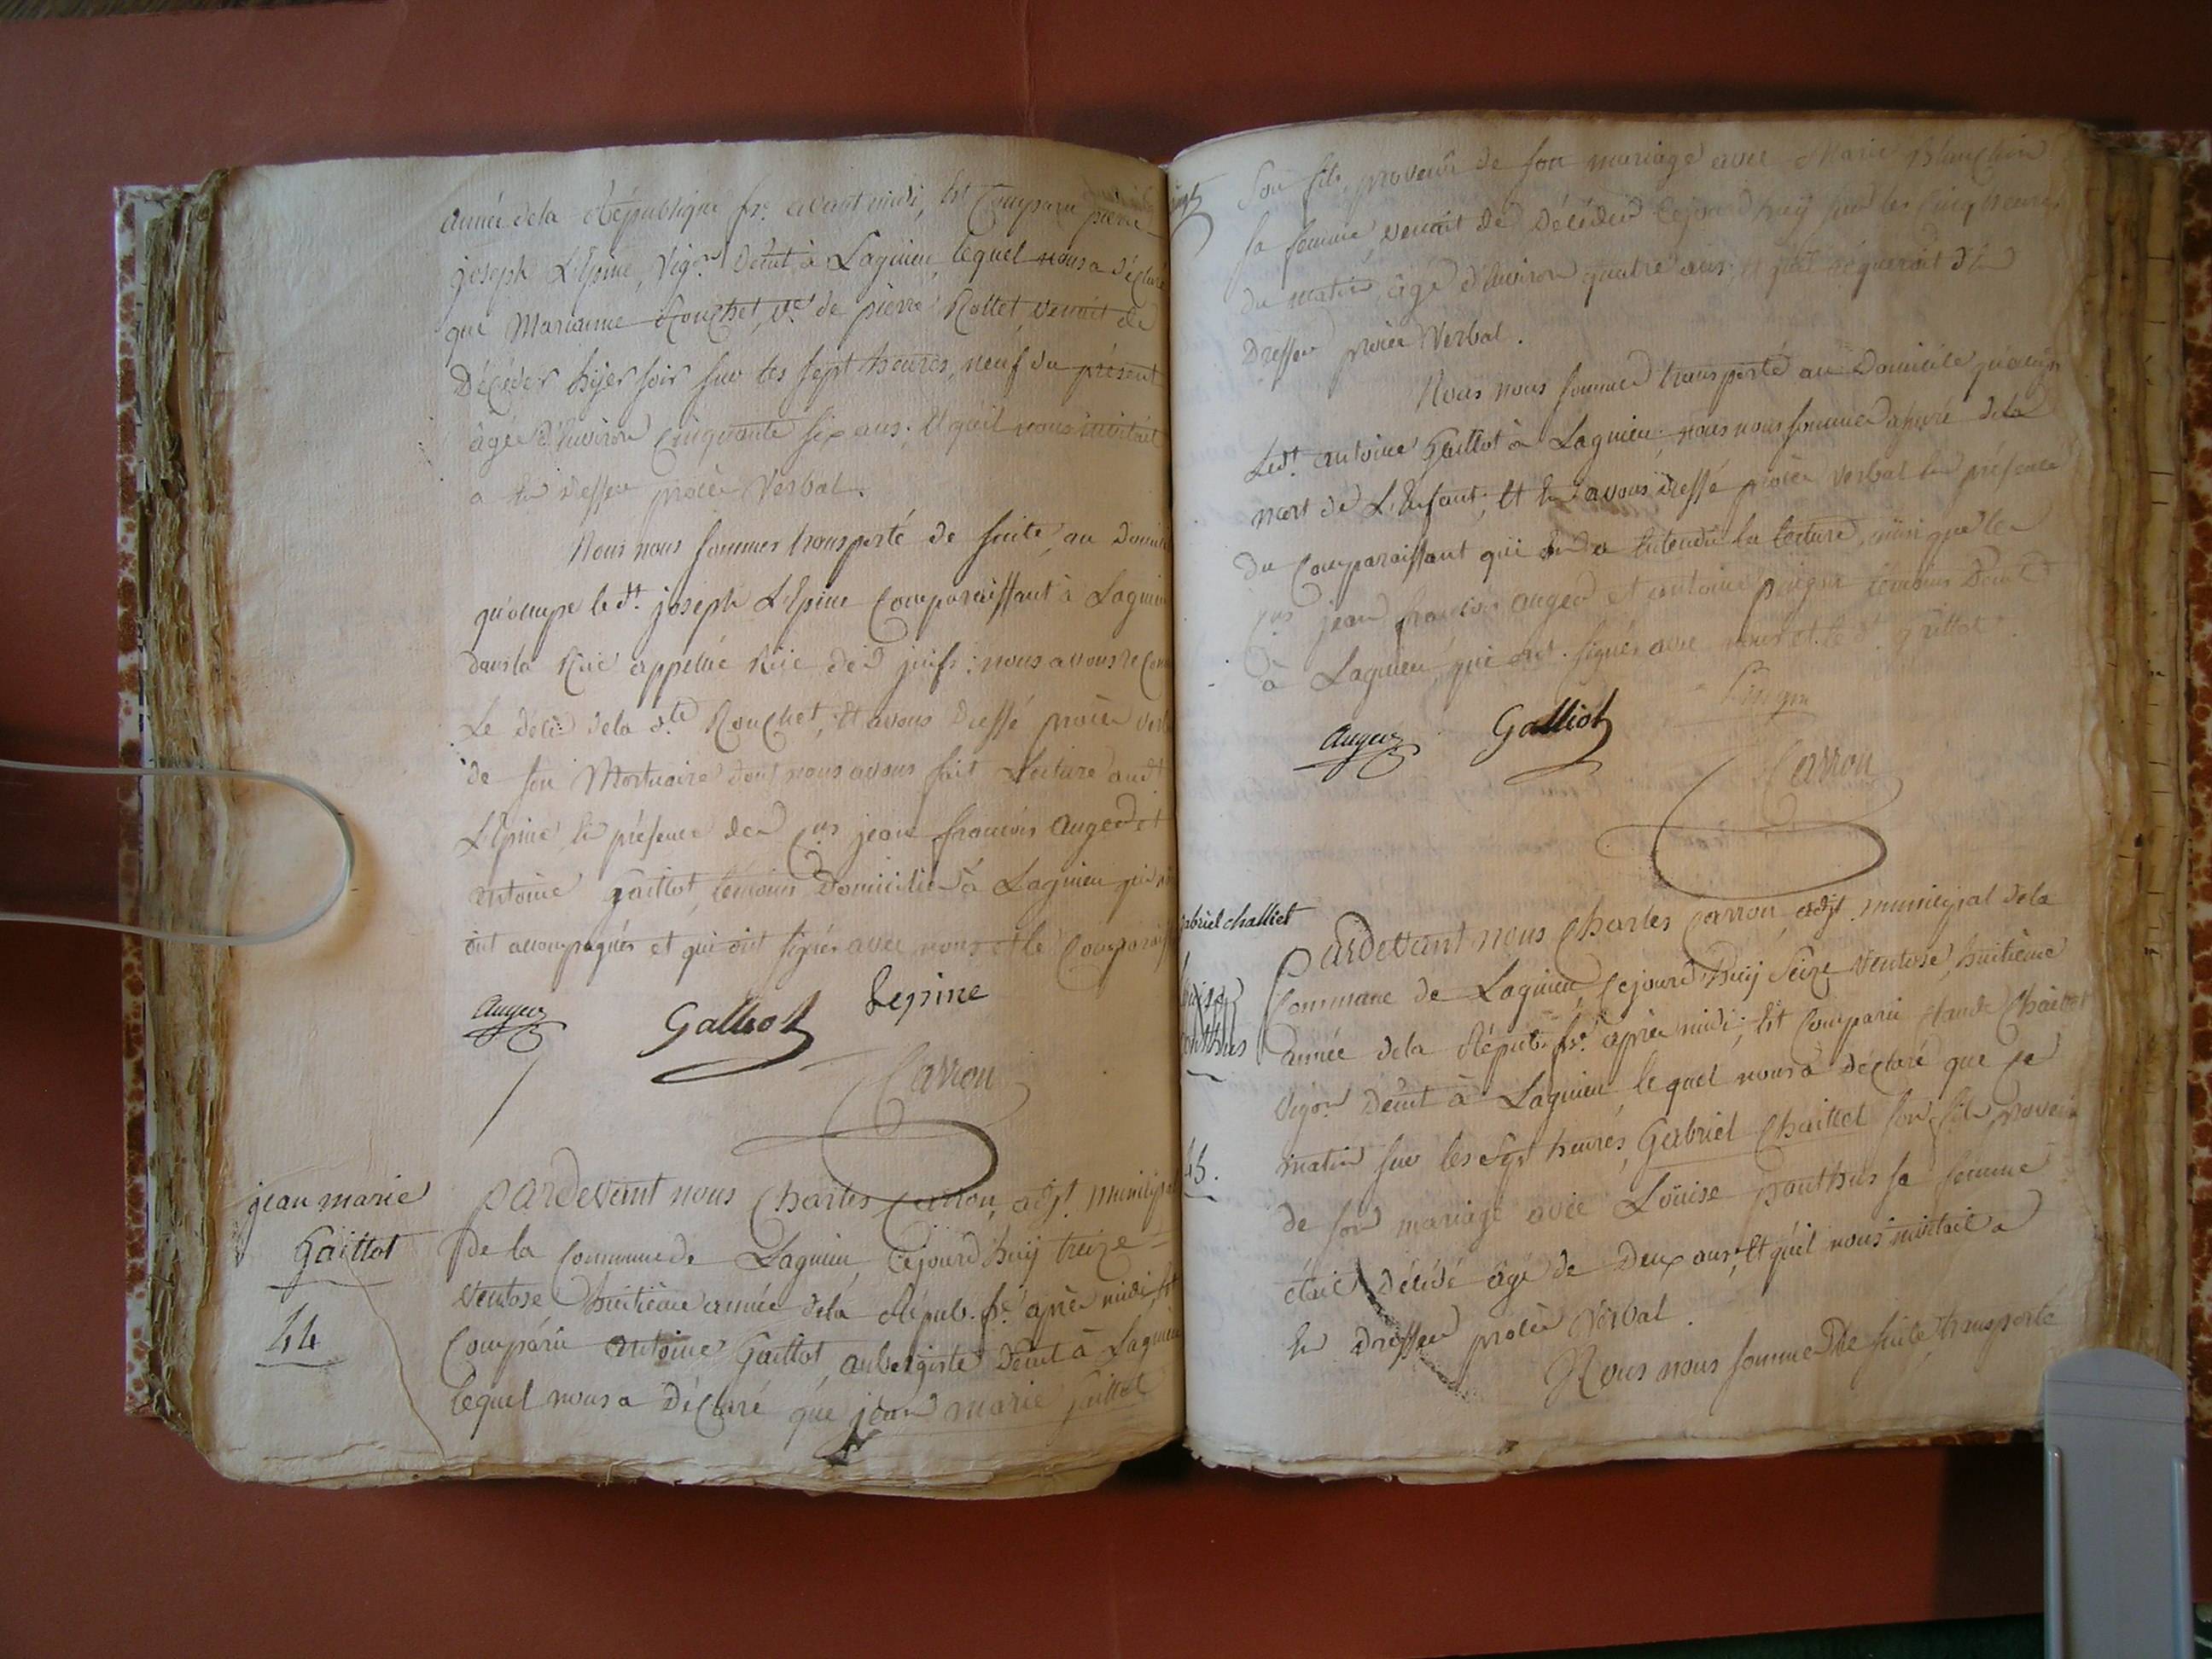 année dela République fse. avant midi, Est Comparu pierre
joseph L'Epine, Vigon. Demt. à Lagnieu, lequel nous a déclaré
que Marianne Rouchet, ve. de pierre Rollet, venait de
Décéder hijer soir sur les sept heures, neuf du présent
âgée d'Environ Cinquante six ans; Et qu'il nous invitait
a En dresser procès Verbal.
Nous nous sommes transporté de suite, au Domicile
qu'ocupe le dt. joseph L'Epine Comparaissant à Lagnieu
dans la Rüe appellée Rüe des juifs; nous avons reconnu
Le décès dela dte. Rouchet, Et avons Dressé procès verbal
de son Mortuaire dont nous avons fait Lecture audt.
L'Epine, En présence des Cns. jean françois Auger et
antoine Gaillot, témoins Domiciliés à Lagnieu qui nous
ont accompagnés et qui ont signés avec nous et le Comparaiss
Auger
Galliot
Lepine
Carron
jean marie
Gaillot
44
Pardevant nous Charles Carron, adjt. municipal
de la Commune de Lagnieu, Cejourd'huy treize
Ventose huitième année dela Répub. fse. après midi, Est
Comparu antoine Gaillot, aubergiste Demt. à Lagnieu
lequel nous a Déclaré que jean marie Gaillot
Son fils, provenu de son mariage avec Marie Blanchin
sa femme, venait de Décéder Cejourd'huy sur les Cinq heures
du matin, âgé d'Environ quatre ans; et qu'il réquerait d'En
Dresser procès Verbal.
Nous nous sommes transporté au Domicile qu'ocupe
Ledt. antoine Gaillot à Lagnieu; nous nous sommes assuré dela
mort de L'Enfant; Et En avons dressé procès verbal En présence
du Comparaissant qui En a Entendu la lecture, ainsi que les
Cns. jean françois Auger et antoine pingon témoins Demt.
à Lagnieu, qui ont signés avec nous et le dt. Gaillot.
Auger
Galliot
Carron
Gabriel challiet
45.
Pardevant nous Charles Carron, adjt. municipal dela
Commune de Lagnieu, Cejourd'huy Seize Ventose, huitième
année dela Répub. fse. après midi; Est Comparu Claude Chaillet
Vigon. Demt. à Lagnieu, lequel nous a déclaré que ce
matin sur les sept heures, Gabriel Chaillet son fils, provenu
de son mariage avec Loüise ponthus sa femme
était décédé âgé de Deux ans; Et qu'il nous invitait a
En dresser procès Verbal.
Nous nous sommes De suite, transporté